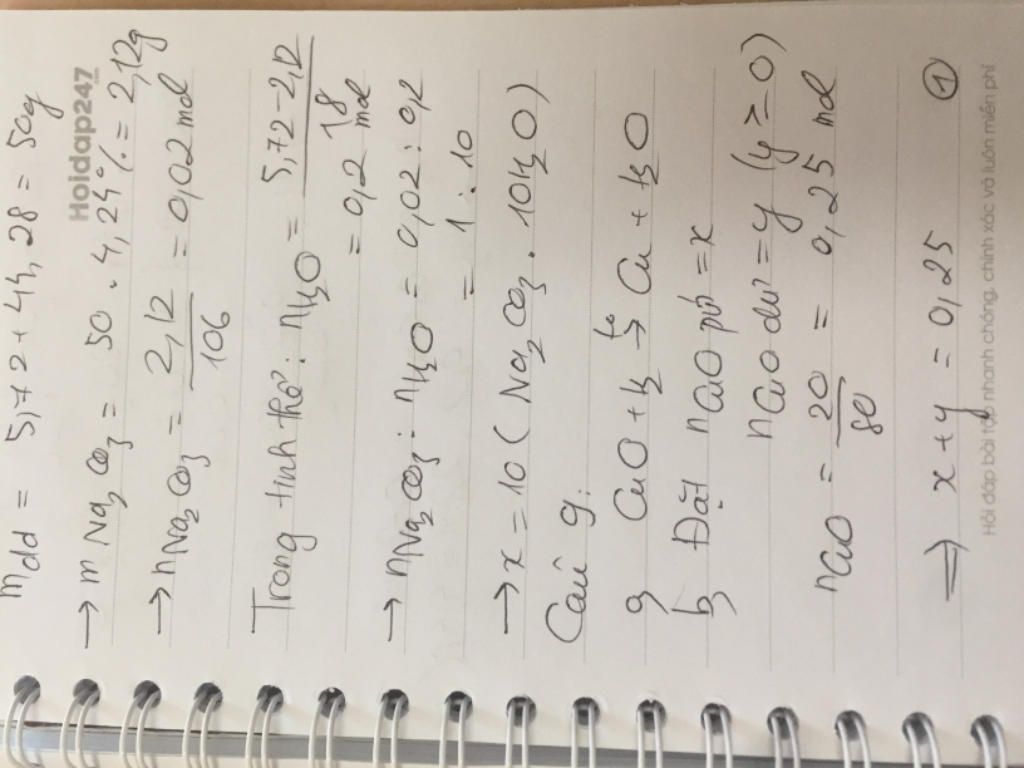 mdd = 5,72 + 44,28 = 50g
Hoidap247
→ m Na2CO3 = 50 . 4,24% = 2,12g
→ nNa2CO3 = 2,12/106 = 0,02 mol
Trong tinh thể: nH2O = 5,72-2,12/18
= 0,2 mol
→ nNa2CO3 : nH2O = 0,02 : 0,2
= 1 : 10
→ x = 10 (Na2CO3 . 10H2O)
Câu 9:
a, CuO + H2 t° → Cu + H2O
b, Đặt nCuO pứ = x
nCuO dư = y (y ≥ 0)
nCuO = 20/80 = 0,25 mol
⇒ x + y = 0,25 ①
Hỏi đáp bài tập nhanh chóng, chính xác và luôn miễn phí